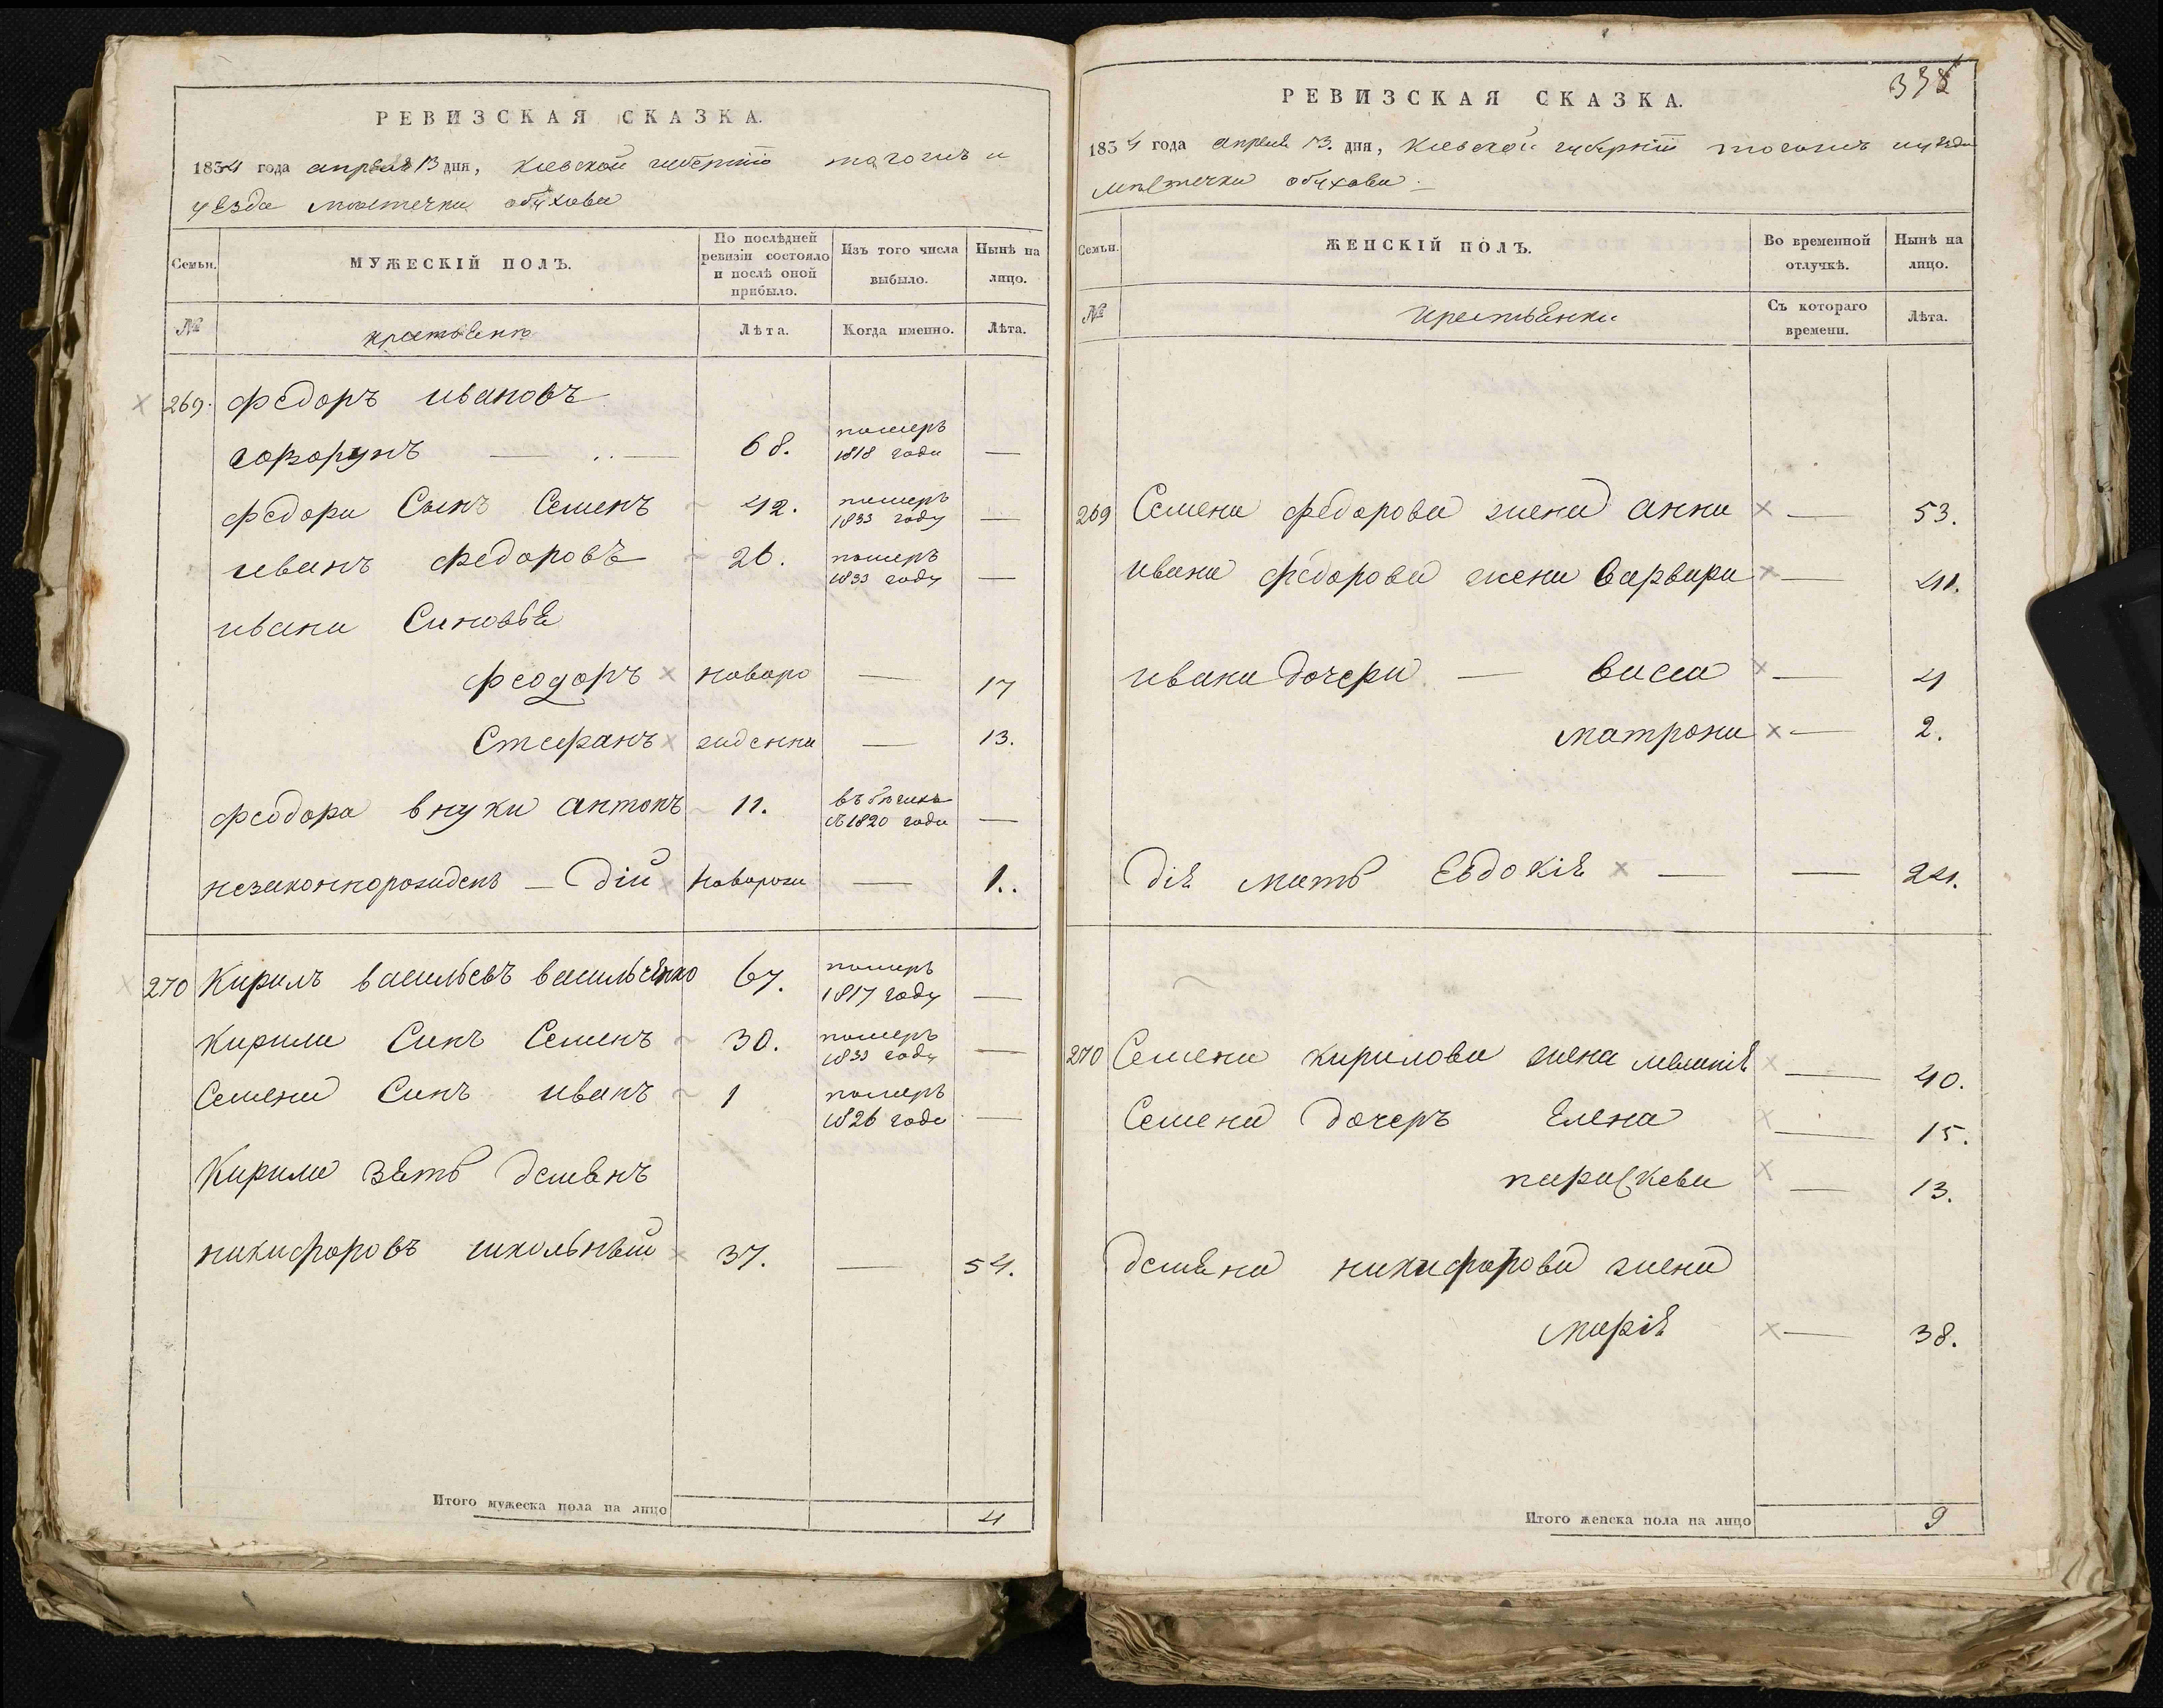 РЕВИЗСКАЯ СКАЗКА.
1834 года апреля 13 дня, киевской губернїи тогожъ и
уезда местечка обухова
Семьи.
МУЖЕСКІЙ ПОЛЪ.
По послѣдней ревизіи состояло и послѣ оной прибыло.
Изъ того числа выбыло.
Нынѣ на лицо.
№
крестьѣнъ
Лѣта.
Когда именно.
Лѣта.
269. федоръ ивановъ
68. померъ 1818 года —
федора Сынъ Семенъ 42. померъ 1833 году —
иванъ федоровъ 26. померъ 1833 году —
ивана Синовьѣ
феодоръ × новоро — 17
Стефанъ × жденни — 13.
феодора внуки антонъ 11. 1820 года —
незаконнорожденъ — дій новорож — 1..
270 Кирилъ васильевъ васильченко 67. померъ 1817 году —
кирила Синъ Семенъ 30. померъ 1833 году —
Семена Синъ иванъ 1 померъ 1826 года —
Кирила зѣть демѣнъ
никифоровъ школьный × 37. — 54.
Итого мужеска пола на лицо 4
338
РЕВИЗСКАЯ СКАЗКА.
1834 года апреля 13. дня, киевской губернїи тогожъ уезда
местечка обухова
Семьи.
ЖЕНСКІЙ ПОЛЪ.
Во временной отлучкѣ.
Нынѣ на лицо.
№
крестьѣнки
Съ котораго времени.
Лѣта.
269 Семена федорова жена анна × — 53.
ивана федорова жена варвара × — 41.
ивана дочери — васса × — 4
матрона × — 2.
діѣ мать Евдокіѣ × — — 24.
270 Семена кирилова жена меланіѣ × — 40.
Семена дочеръ Елена × — 15.
параскева × — 13.
демѣна никифорова жена
маріѣ × — 38.
Итого женска пола на лицо 9